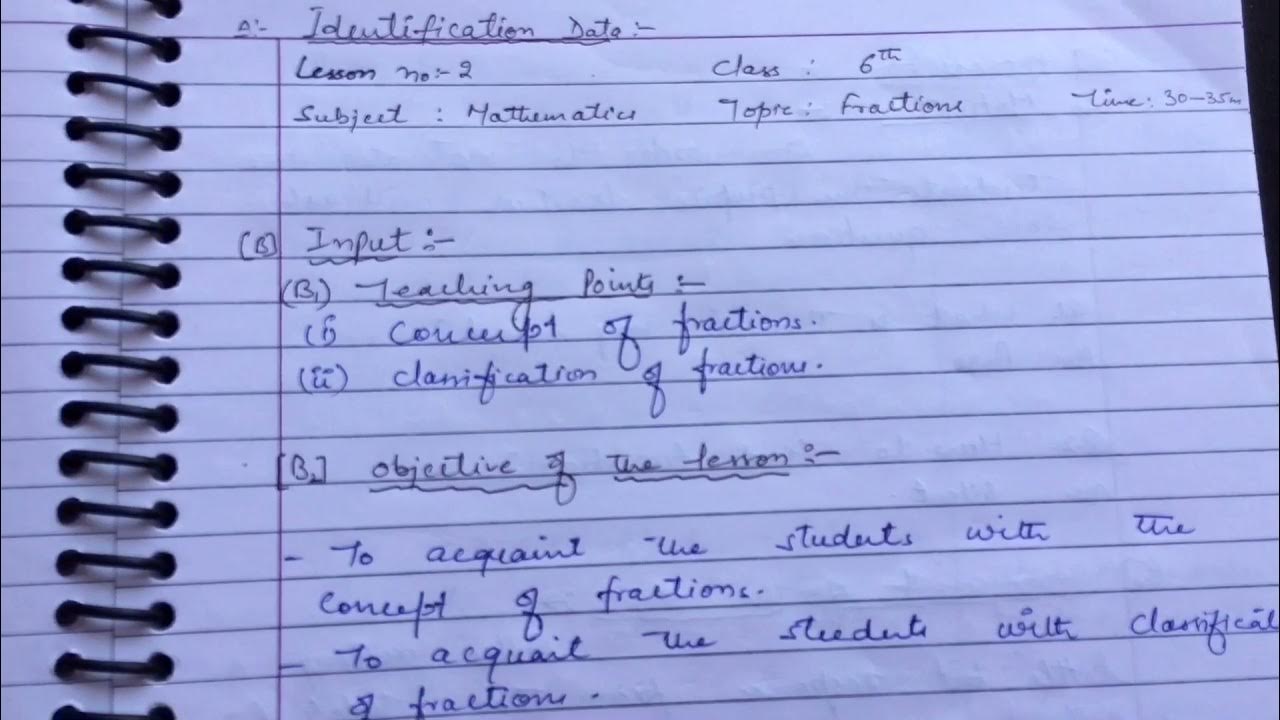 A:- Identification Data:-
Lesson no:- 2 Class : 6th
Subject : Mathematics Topic : Fractions Time: 30-35m
(B) Input :-
(B1) Teaching Points :-
(i) Concept of fractions.
(ii) classification of fractions.
[B2] objective of the lesson :-
- To acquaint the students with the
concept of fractions.
- To acquait the students with classificat
of fractions.